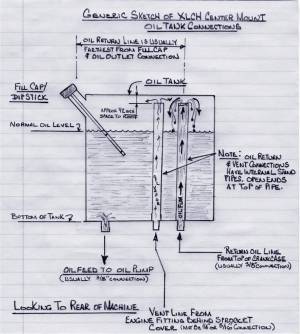 GENERIC SKETCH OF XLCH CENTER MOUNT
OIL TANK CONNECTIONS
OIL RETURN LINE IS USUALLY
FARTHEST FROM FILL CAP
& OIL OUTLET CONNECTION
FILL CAP/
DIPSTICK
OIL TANK
APPROX 1/2 INCH
SPACE TO
NORMAL OIL LEVEL
NOTE: OIL RETURN
& VENT CONNECTIONS
HAVE INTERNAL STAND
PIPES. OPEN ENDS
AT TOP OF PIPE.
BOTTOM OF TANK
OIL FEED TO OIL PUMP
(USUALLY 3/8" CONNECTION)
RETURN OIL LINE
FROM TOP OF CRANKCASE
(USUALLY 3/8" CONNECTION)
LOOKING TO REAR OF MACHINE
VENT LINE FROM
ENGINE FITTING BEHIND SPROCKET
COVER (MAY BE 1/4 OR 5/16 CONNECTION)